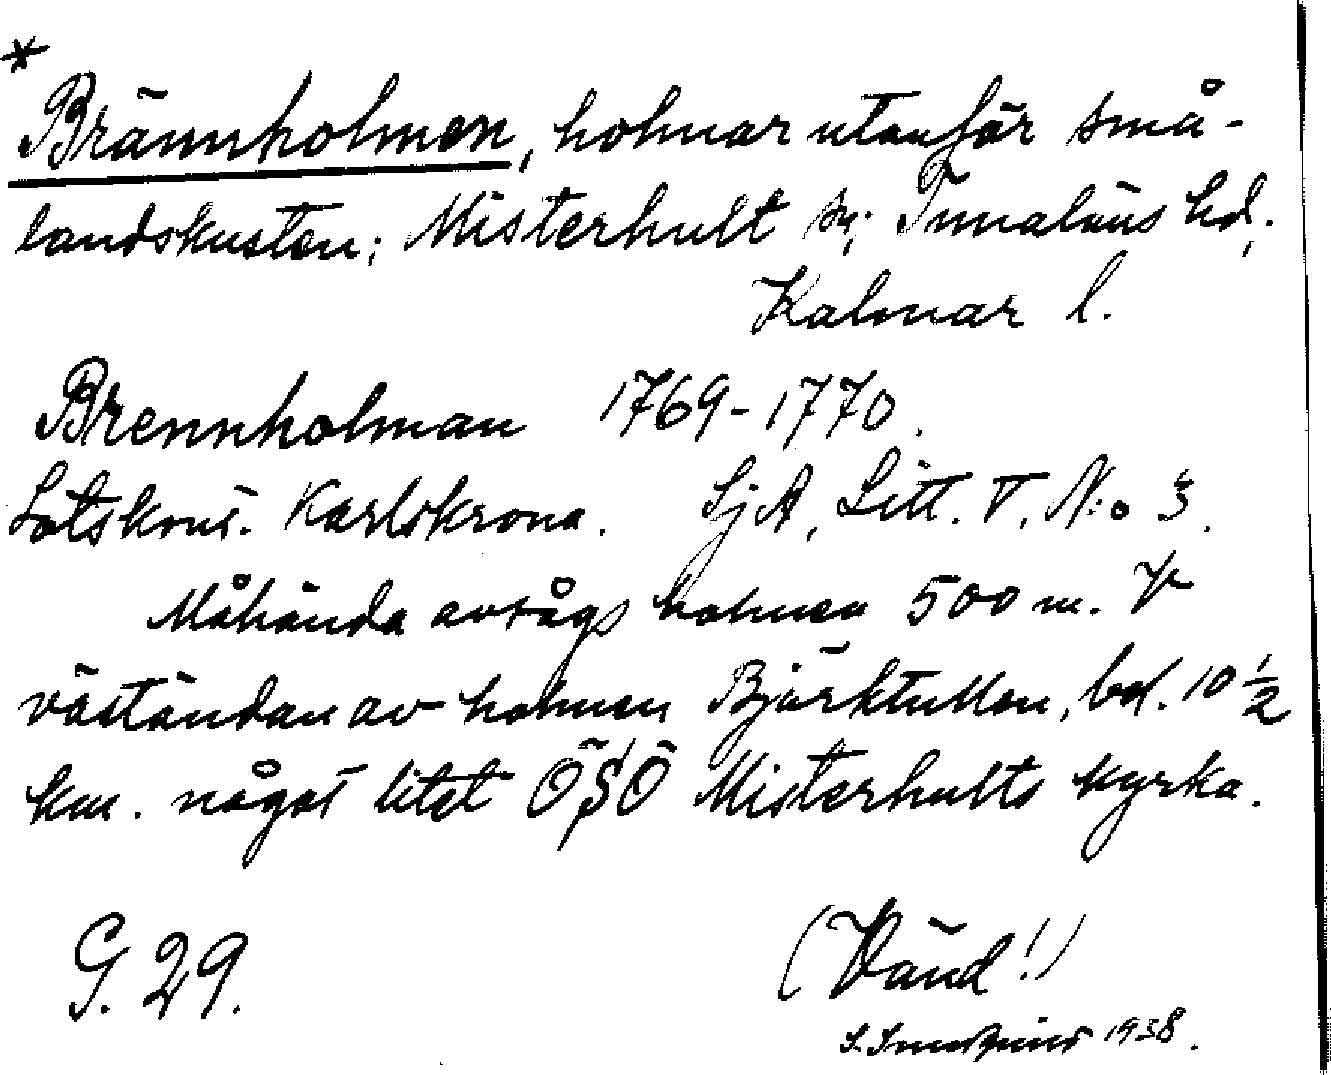 *
Brännholmen, holmar utanför små-
landskusten; Misterhult sn; Tunaläns hd,
Kalmar l.
Brennholman 1769-1770.
Lotskont. Karlskrona. SjA, Litt. V. N:o 3.
Måhända avsågs holmen 500 m. V
väständan av holmen Björktullen, bel. 10 1/2
km. något litet ÖSÖ Misterhults kyrka.
G. 29. (Vänd!)
1938.